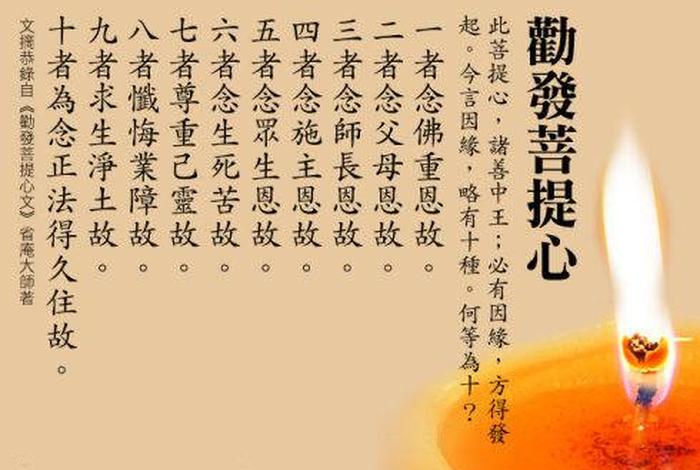 勸發菩提心
此菩提心，諸善中王；必有因緣，方得發
起。今言因緣，略有十種。何等為十？
一者念佛重恩故。
二者念父母恩故。
三者念師長恩故。
四者念施主恩故。
五者念眾生恩故。
六者念生死苦故。
七者尊重己靈故。
八者懺悔業障故。
九者求生淨土故。
十者為念正法得久住故。
文摘恭錄自《勸發菩提心文》省庵大師著